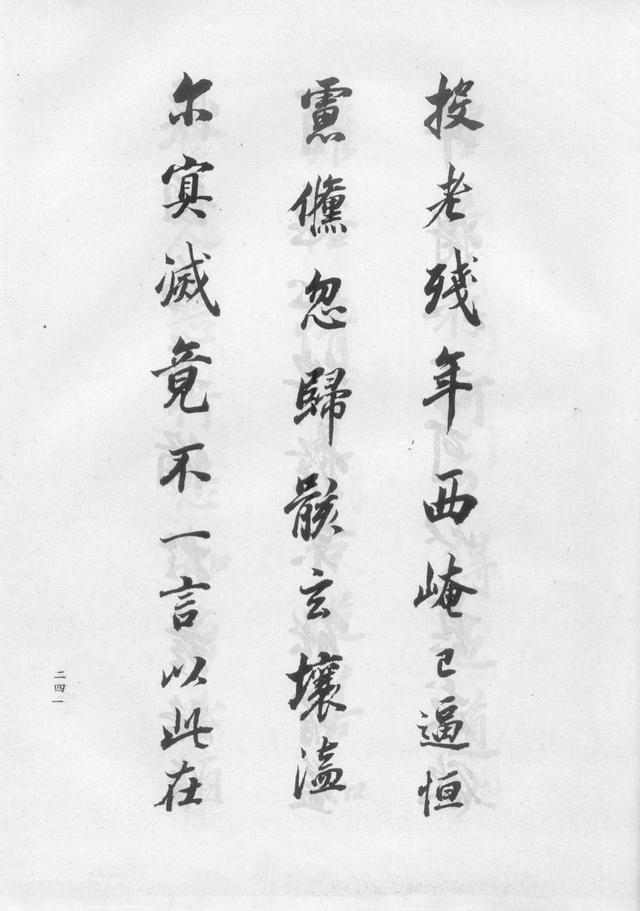 投老残年西崦已逼恒
慮儻忽歸骸玄壤溘
尔寘滅竟不一言以此在
二四一